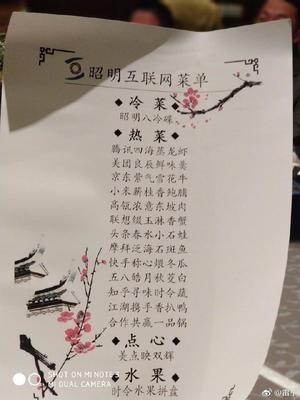 昭明互联网菜单
◆冷菜◆
昭明八冷碟
◆热菜◆
腾讯四海蒸龙虾
美团良辰鲜味羹
京东紫气雪花牛
小米薪桂香炖腩
高瓴浓意东坡肉
联想缇玉淋香蟹
头条春水小石蛙
摩拜泛海石斑鱼
快手称心煨冬瓜
五八皓月秋茭白
知乎寻味时令蔬
江湖携手香扒鸭
合作共赢一品锅
◆点心◆
美点映双辉
◆水果◆
时令水果拼盘
SHOT ON MI NOTE 3
MI DUAL CAMERA